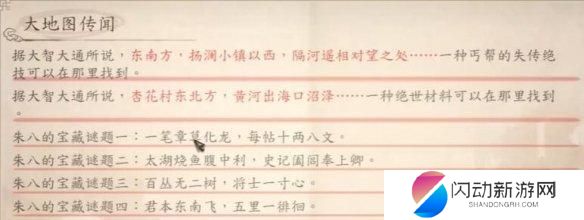 大地图传闻
据大智大通所说，东南方，扬澜小镇以西，隔河遥相对望之处……一种丐帮的失传绝
技可以在那里找到。
据大智大通所说，杏花村东北方，黄河出海口沼泽……一种绝世材料可以在那里找到
。
朱八的宝藏谜题一：一笔章草化龙，每帖十两八文。
朱八的宝藏谜题二：太湖烧鱼腹中利，史记阖闾奉上卿。
朱八的宝藏谜题三：百丛无二树，将士一寸心。
朱八的宝藏谜题四：君本东南飞，五里一徘徊。
闪动新游网
SHANDONGRH.COM